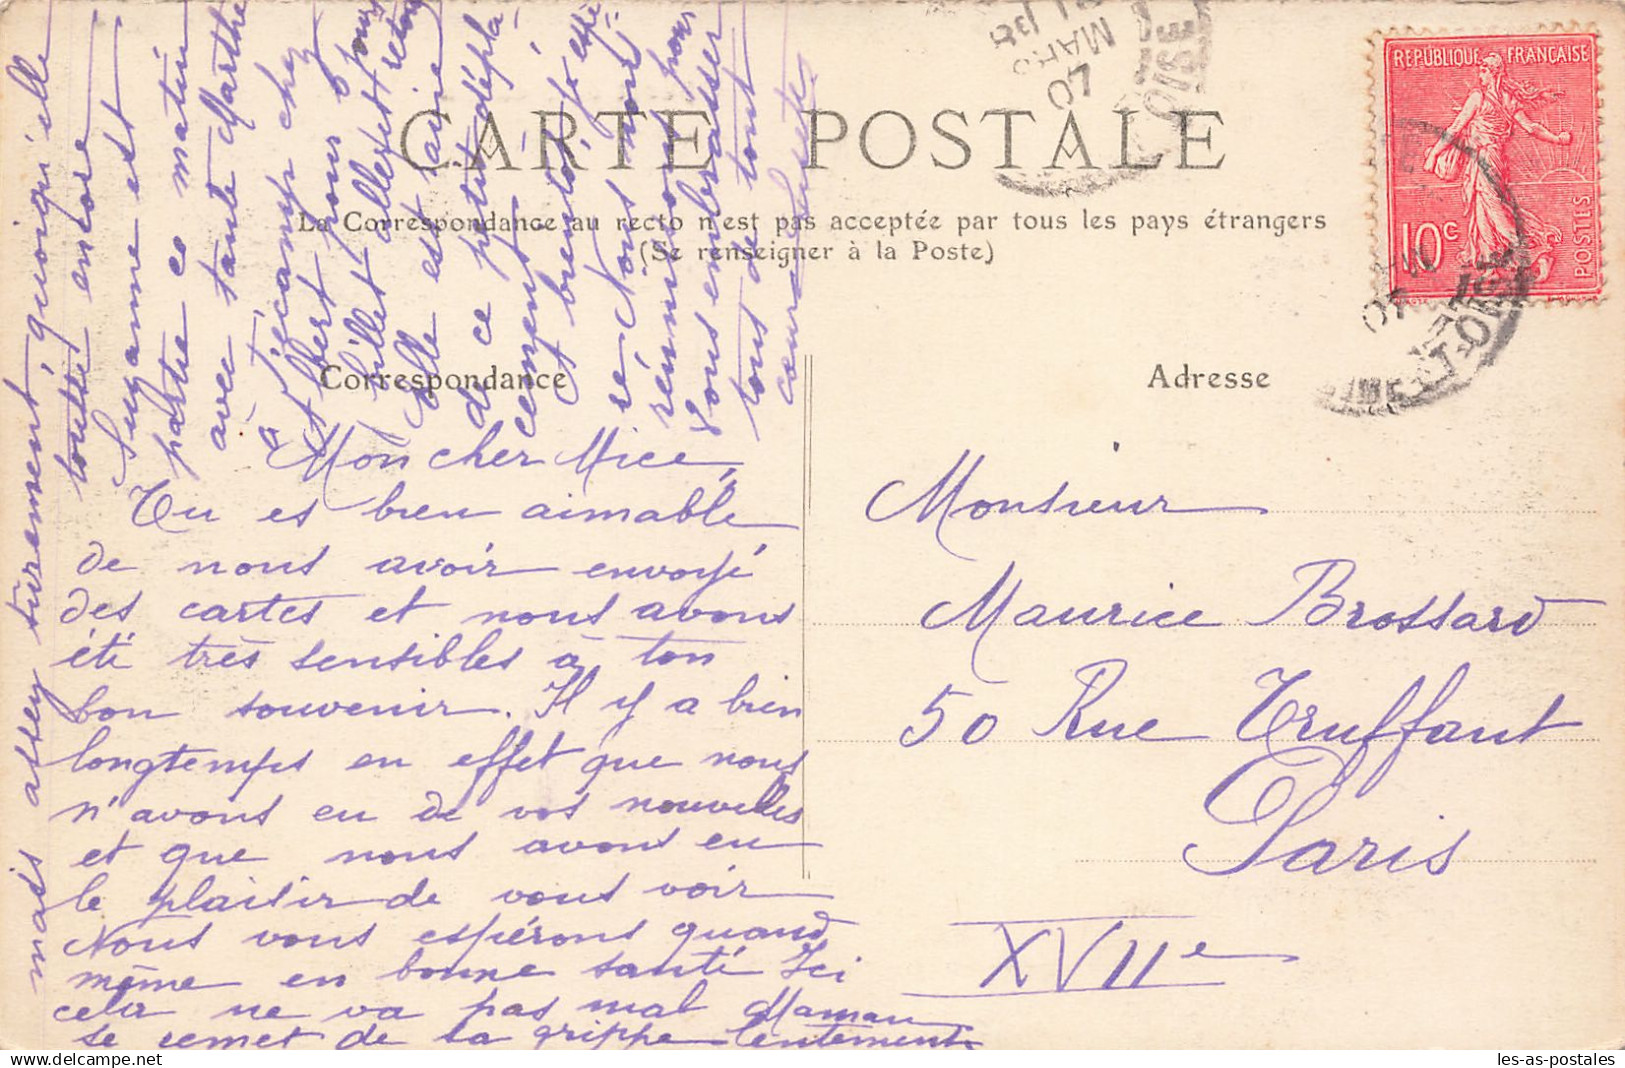 CARTE POSTALE
La Correspondance au recto n'est pas acceptée par tous les pays étrangers
(Se renseigner à la Poste)
Correspondance
Adresse
RÉPUBLIQUE FRANÇAISE
10c
POSTES
MARS
07
OISE
Mon cher Mice,
Tu es bien aimable
de nous avoir envoyé
des cartes et nous avons
été très sensibles à ton
bon souvenir. Il y a bien
longtemps en effet que nous
n'avons eu de vos nouvelles
et que nous avons eu
le plaisir de vous voir
Nous vous espérons quand
même en bonne santé Ici
cela ne va pas mal Maman
se remet de sa grippe lentement
mais assez surement, quoiqu'elle
tousse encore
Suzanne est
partie ce matin
avec tante Marthe
à Fécamp chez
Albert pour
billet d'aller et retour
Elle est ravie
de ce petit dépla-
cement
et bientôt j'espè-
re Nous nous
réunissons pour
vous embrasser
tous de tout
cœur
Monsieur
Maurice Brossard
50 Rue Truffaut
Paris
XVIIe
les-as-postales